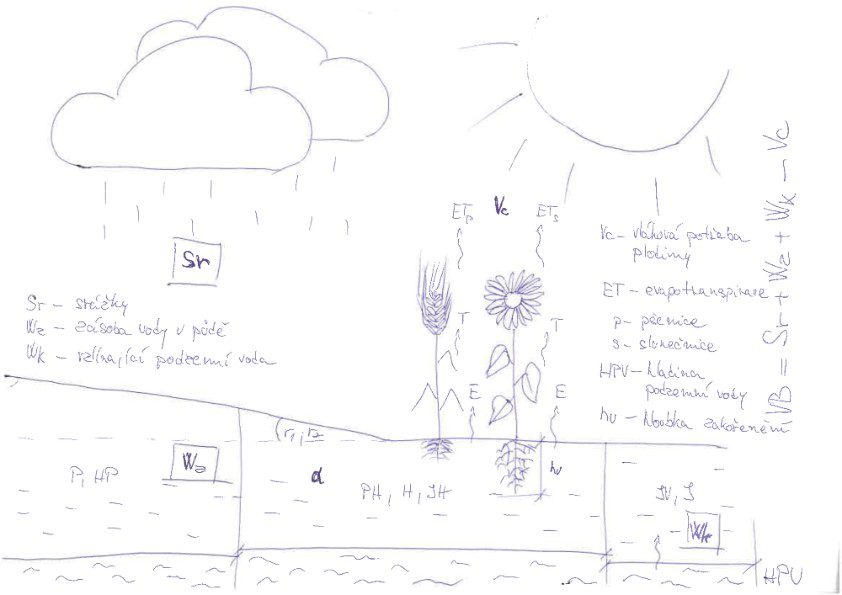 ETp
Vc
ETs
Sr
Vc – vláhová potřeba
plodiny
ET – evapotranspirace
p – pšenice
s – slunečnice
HPV – hladina
podzemní vody
hv – hloubka zakořenění
VB = Sr + Wz + Wk – Vc
Sr – srážky
Wz – zásoba vody v půdě
Wk – vzlínající podzemní voda
T
T
E
E
r1, r2
P, HP
Wz
d
PH, H, JH
hv
JV, J
Wk
HPV